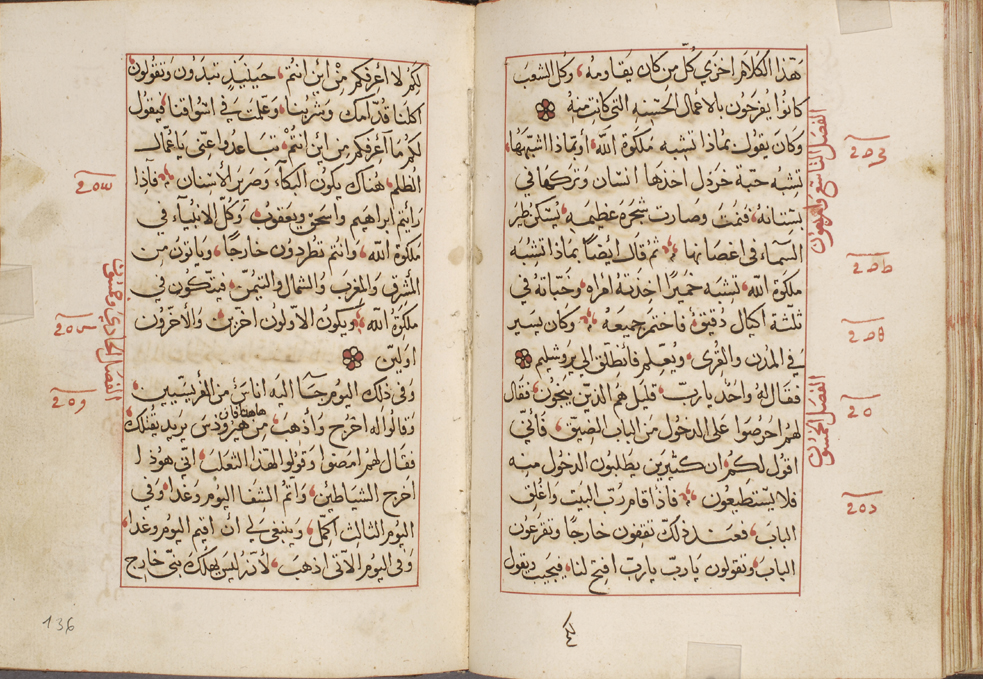 هذا الكلام اخزي كل من كان يقاومه وكل الشعب
كانوا يفرحون بالاعمال الحسنه التي كانت منه
وكان يقول بماذا تشبه ملكوة الله او بماذا اشبهها
تشبه حبة خردل اخذها انسان وتركها في
بستانه فنمت وصارت شجرة عظيمه يسكن طير
السمآء في اغصانها ثم قال ايضًا بماذا تشبه
ملكوة الله تشبه خميرًا اخذته امراه وخبّاته في
ثلثة اكيال دقيق فاختمر جميعه وكان يسير
في المدن والقرى ويعلم فأنطلق الي يروشليم
فقال له واحد يارب قليل هم الذين ينجون فقال
لهم احرصوا على الدخول من الباب الضيق فأني
اقول لكم ان كثيرين يطلبون الدخول منه
فلا يستطيعون فاذا قام رب البيت واغلق
الباب فعند ذلك تقفون خارجًا وتقرعون
الباب وتقولون يارب يارب افتح لنا فيجيب ويقول
الفصل التاسع والاربعون
الفصل الخمسون
لكم
لكم لا اعرفكم من اين انتم حينيذٍ تبدون وتقولون
اكلنا قدّامك وشربنا وعلمت في اسواقنا فيقول
لكم ما اعرفكم من اين انتم تباعدوا عني ياعمّال
الظلم هناك يكون البكآء وصرير الأسنان فأذا
رايتم ابراهيم واسحق ويعقوب وكل الانبيآء في
ملكوة الله وانتم تطردون خارجًا وياتون من
المشرق والمغرب والشمال والتيمن فيتكون في
ملكوة الله ويكون الاولون اخرين والأخرون
اولين
وفي ذلك اليوم جآ اليه اناس من الفريسيين
وقالوا له اخرج وأذهب من هاهنا فان هيرودس يريد يقتلك
فقال لهم امضوا وقولوا لهذا الثعلب اني هوذا
اخرج الشياطين واتم الشفا اليوم وغدا وفي
اليوم الثالث اكمل وينبغي لي ان اقيم اليوم وغدا
وفي اليوم الآتي اذهب لأنه ليس يهلك نبيّ خارج
الفصل الحادي وخمسون
136